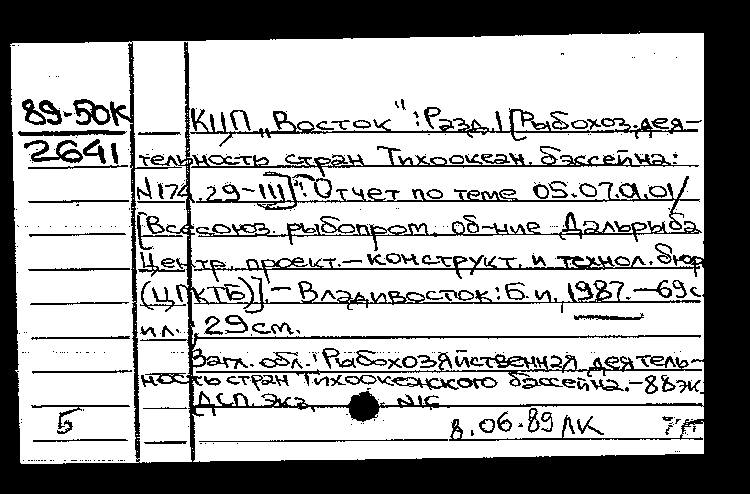 89-50К
2641
КЦП „Восток": Разд. 1 [Рыбохоз. дея-
тельность стран Тихоокеан. бассейна:
N174.29-III]: Отчет по теме 05.07.01.01/
[Всесоюз. рыбопром. об-ние Дальрыба
Центр. проект.-конструкт. и технол. бюр
(ЦПКТБ)].- Владивосток: Б.и., 1987.-69с
ил.; 29 см.
Загл. обл.: Рыбохозяйственная деятель-
ность стран Тихоокеанского бассейна.-88эк
ДСП. Экз. N16
5
8.06.89 ЛК